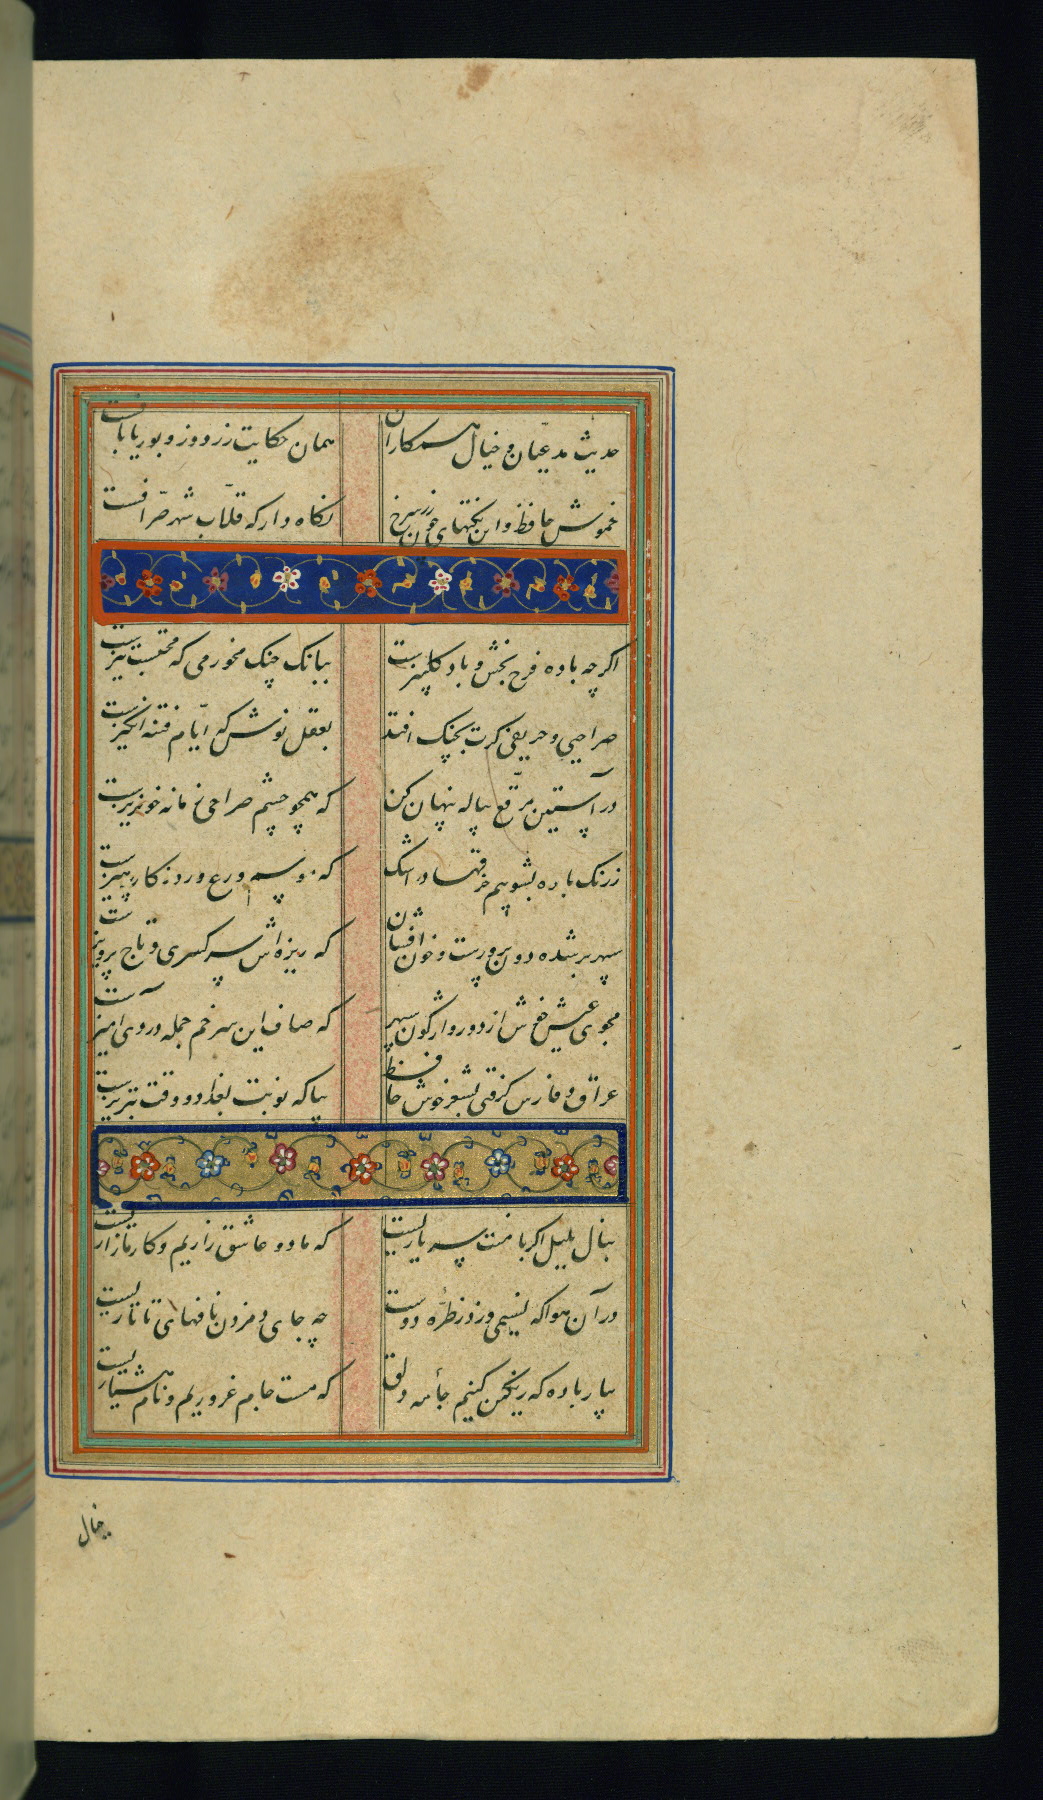 حدیث مدعیان و خیال همکاران
همان حکایت زردوز و بوریابافست
خموش حافظ و این نکتهای چون زر سرخ
نکاه دار که قلّاب شهر صرّافست
اکر چه باده فرح بخش و باد کلبیزست
ببانک چنک مخور می که محتسب تیزست
صراحیی و حریفی کرت بچنک افتد
بعقل نوش که ایّام فتنه انکیزست
در آستین مرقّع پیاله پنهان کن
که همچو چشم صراحی زمانه خونریزست
زرنک باده بشوییم خرقها در اشک
که موسم ورع و روزکار پرهیزست
سپهر برشده پرویزنیست خون افشان
که ریزه اش سر کسری و تاج پرویزست
مجوی عیش خوش از دور واژکون سپهر
که صاف این سر خم جمله دردی آمیزست
عراق و فارس کرفتی بشعر خوش حافظ
بیا که نوبت بغداد و وقت تبریزست
بنال بلبل اکر با منت سر یاریست
که ما دو عاشق زاریم و کار ما زاریست
در آن هوا که نسیمی وزد ز طرّه دوست
چه جای دم زدن نافهای تاتاریست
بیار باده که رنکین کنیم جامه دلق
که مست جام غروریم و نام هشیاریست
خیال